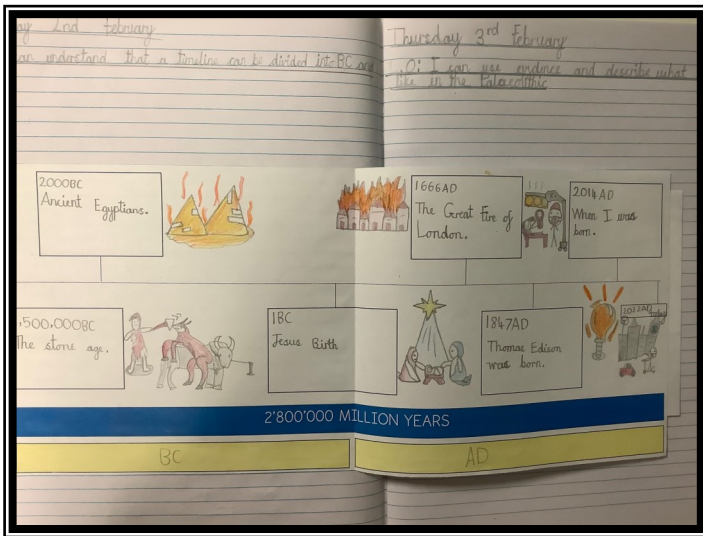 ay 2nd February
an understand that a timeline can be divided into BC and
Thursday 3rd February
O: I can use evidence and describe what
like in the Palaeolithic
2000BC
Ancient Egyptians.
1666AD
The Great Fire of
London.
2014AD
When I was
born.
,500,000BC
The stone age.
1BC
Jesus Birth
1847AD
Thomas Edison
was born.
2022AD
Today
2'800'000 MILLION YEARS
BC
AD